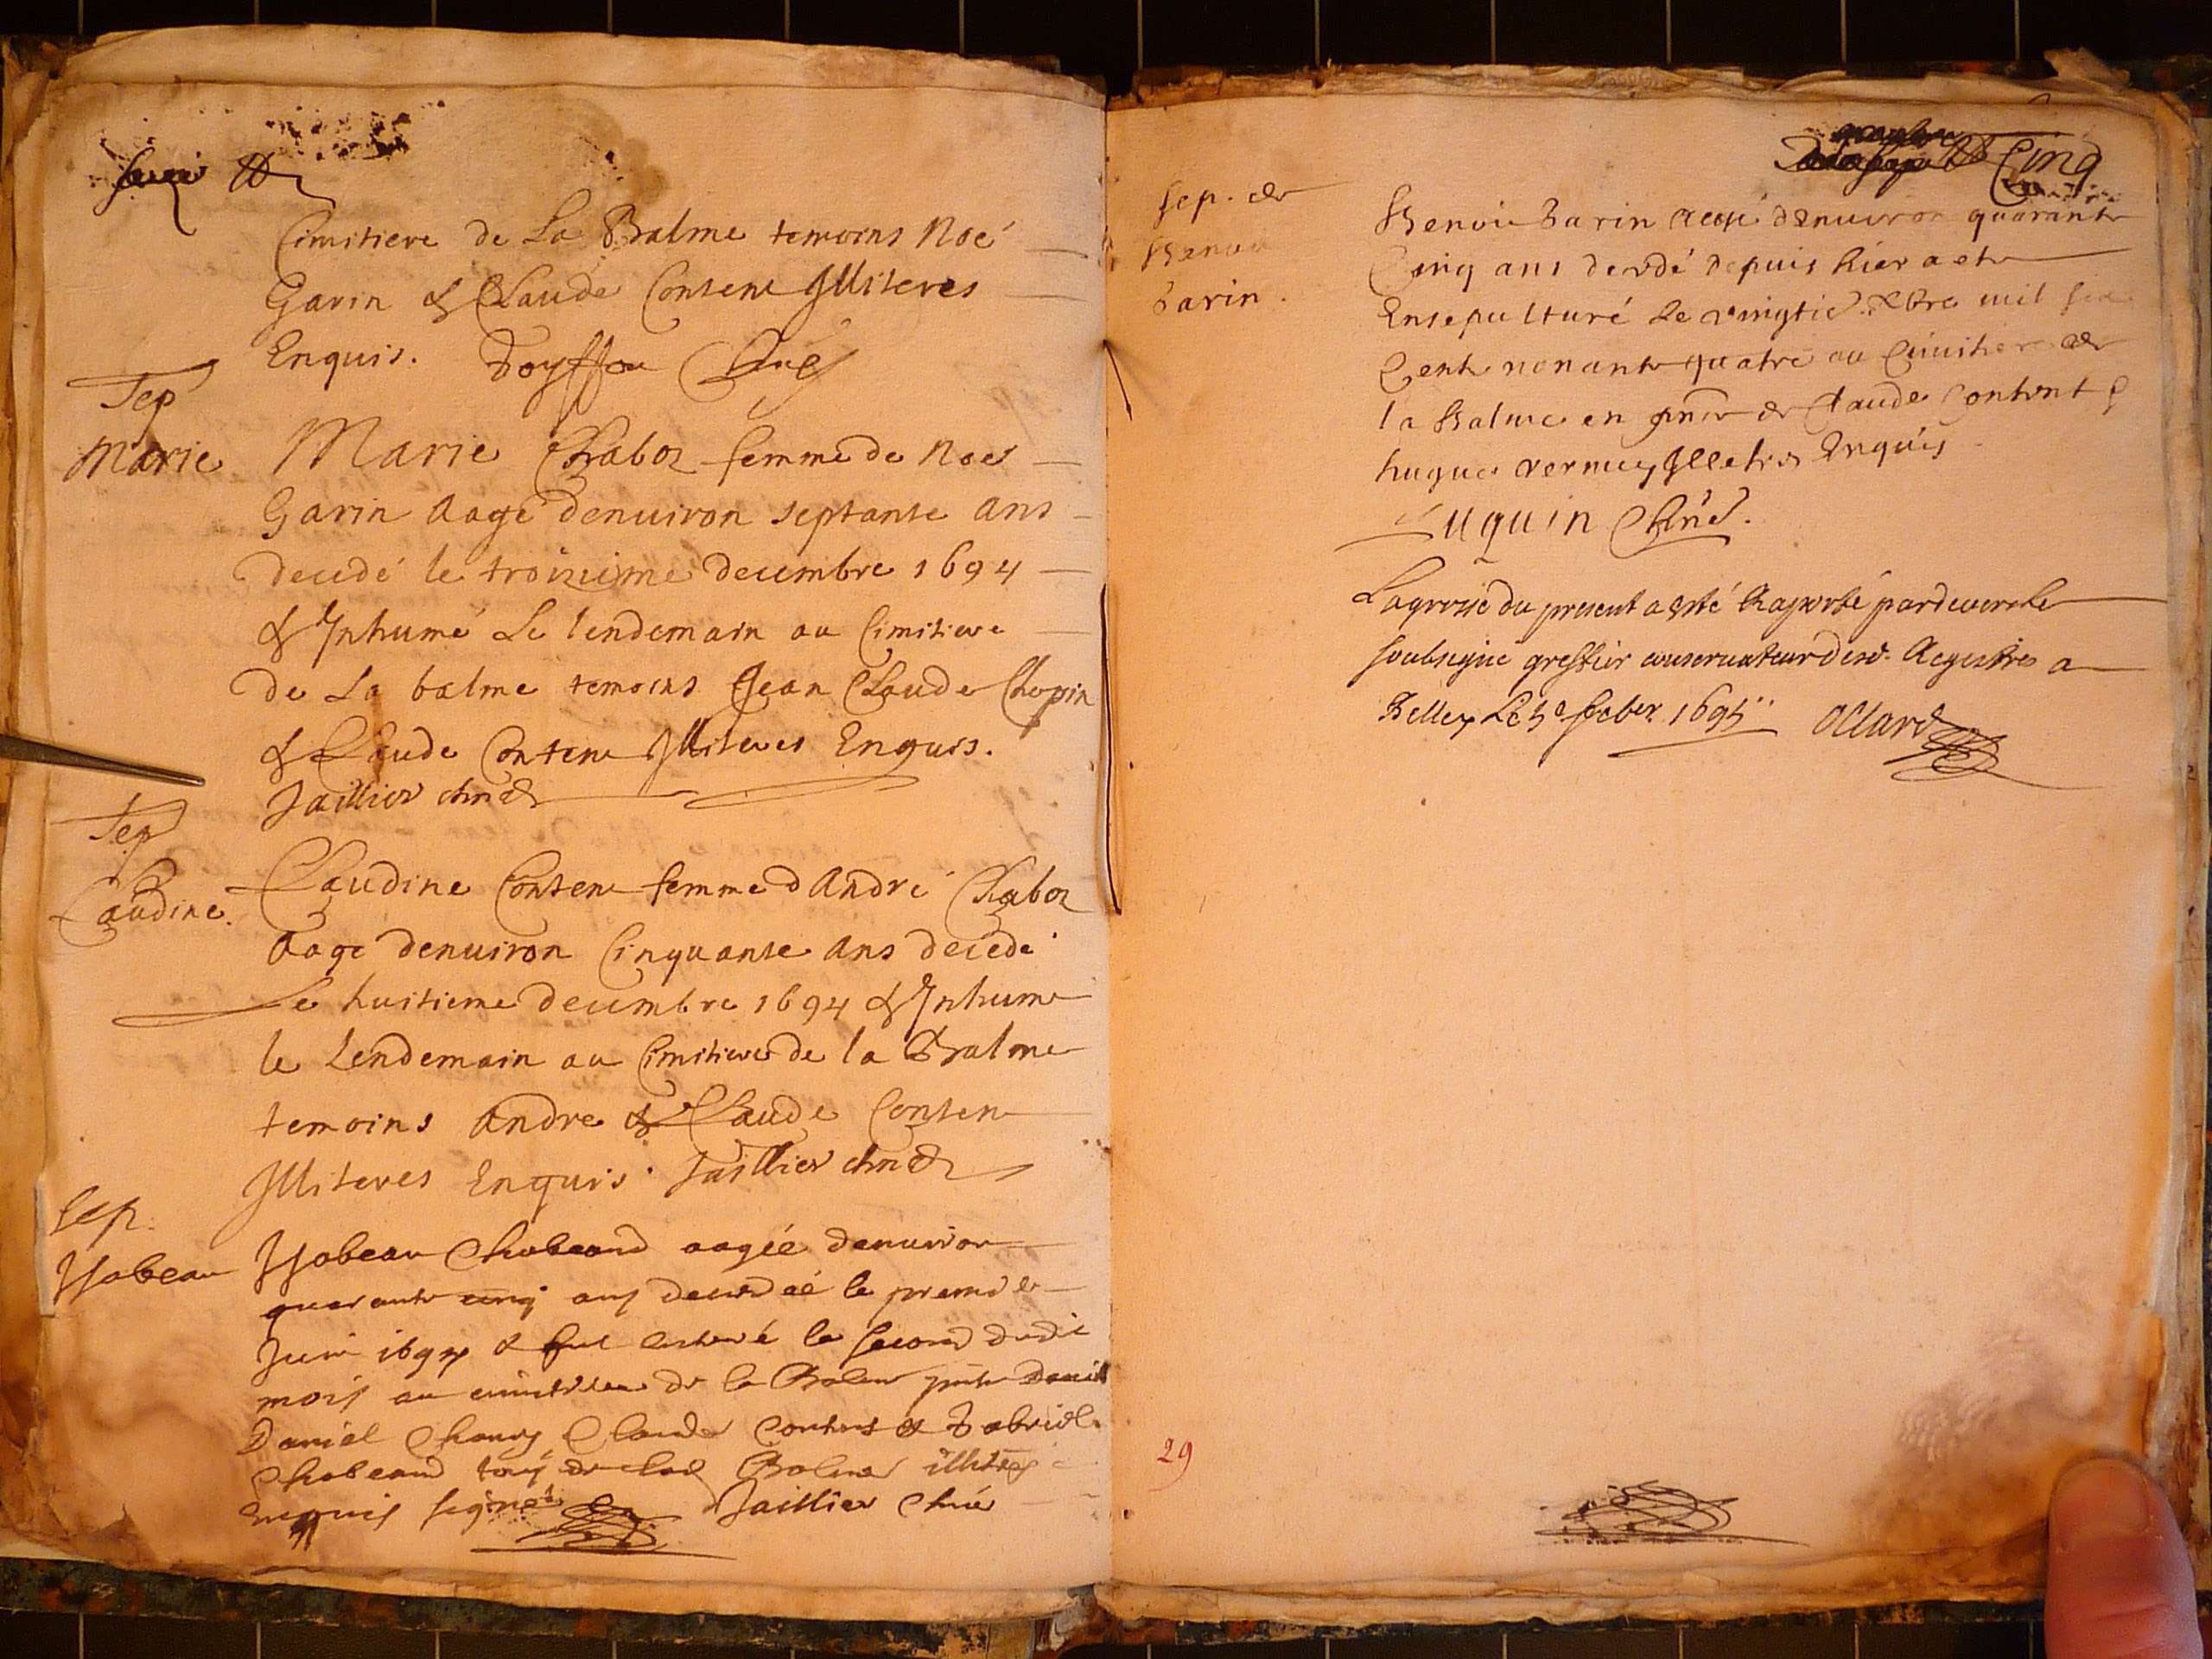 Cimitiere de La Balme temoins Noé
Garin & Claude Conten Illiteres
Enquis.
Sep
Marie
Marie Chaboz femme de Noel
Garin Aagé denuiron septante ans
decedé le troizieme decembre 1694
& Inhumé Le lendemain au Cimitiere
de La balme temoins Jean Claude Chopin
& Claude Conten Illiteres Enquis.
Jaillier
Sep
Claudine.
Claudine Conten femme d André Chaboz
Aagé denuiron Cinquante ans decedé
Le huitieme decembre 1694 & Inhumé
le Lendemain au Cimitiere de la Balme
temoins André & Claude Conten
Illiteres Enquis. Jaillier
Sep.
Ysabeau
Ysabeau Chabeaud aagée denuiron
quarante cinq ans decedée le premier
& fut le second dudit
mois au cimitiere de la Balme Daniel
Daniel Claude Contens & Gabriel
Chabeaud tous de Balme
enquis Jaillier
Cinq
sep. de
Benoit
Garin.
Benoit Garin denuiron quarante
Cinq ans depuis hier a ete
Ensepulturé Le vingtie. Xbre mil six
Cent nonante quatre au Cimitiere de
la Balme en de Claude Content &
hugues Enquis
Luquin
La grosse du present a esté Raporté pardeuers le
soubsigné greffier conseruateur desd. Registres a
Belley Le
29